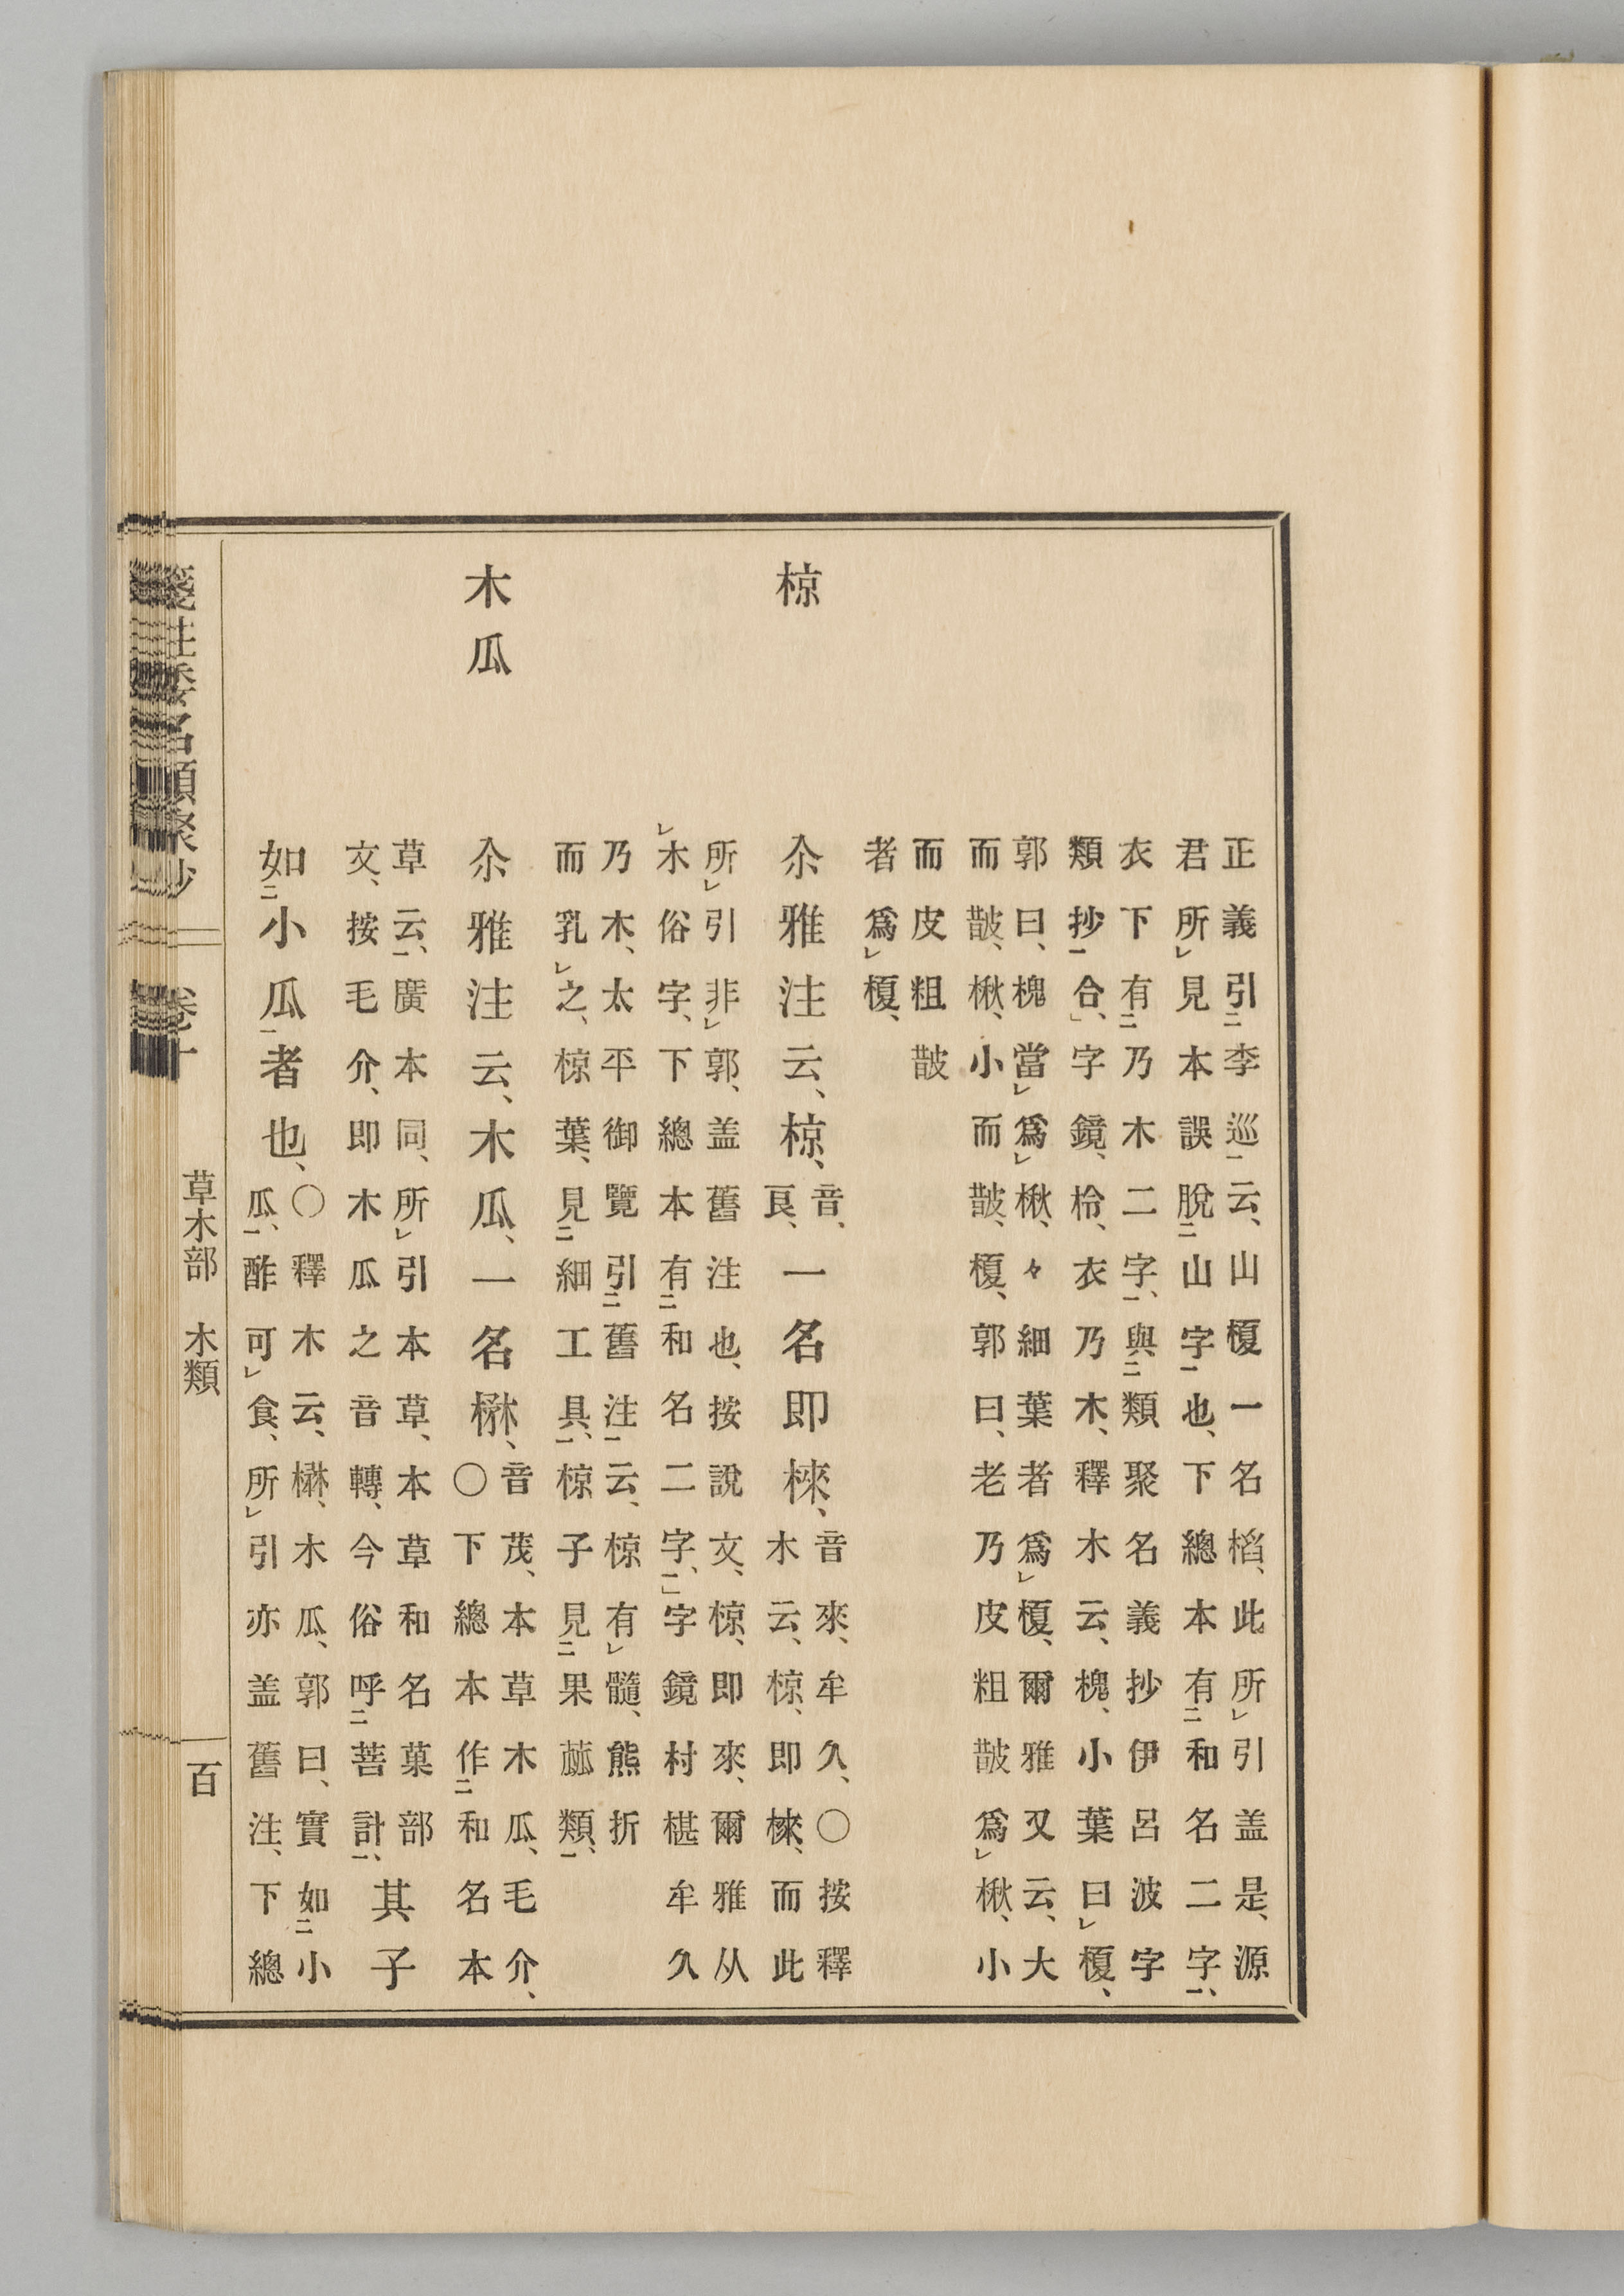 正義引二李巡一云、山榎一名槄、此所レ引盖是、源
君所レ見本誤脫二山字一也、下總本有二和名二字一、
衣下有二乃木二字一、與二類聚名義抄伊呂波字
類抄一合、」字鏡、柃、衣乃木、釋木云、槐、小葉曰レ榎、
郭曰、槐當レ爲レ楸、々細葉者爲レ榎、爾雅又云、大
而皵、楸、小而皵、榎、郭曰、老乃皮粗皵爲レ楸、小
而皮粗皵
者爲レ榎、
椋
尒雅注云、椋、音良、一名即棶、音來、牟久、〇按釋
木云、椋、即棶、而此
所レ引非レ郭、盖舊注也、按說文、椋、即來、爾雅从
レ木俗字、下總本有二和名二字、一」字鏡村椹牟久
乃木、太平御覽引二舊注一云、椋有レ髓、熊折
而乳レ之、椋葉、見二細工具一、椋子見二果蓏類一、
木瓜
尒雅注云、木瓜、一名楙、音茂、本草木瓜、毛介、
〇下總本作二和名本
草云一、廣本同、所レ引本草、本草和名菓部
文、按毛介、即木瓜之音轉、今俗呼二菩計一、其子
如二小瓜一者也、〇釋木云、楙、木瓜、郭曰、實如二小
瓜一、酢可レ食、所レ引亦盖舊注、下總
箋注倭名類聚抄 卷十 草木部 木類 百